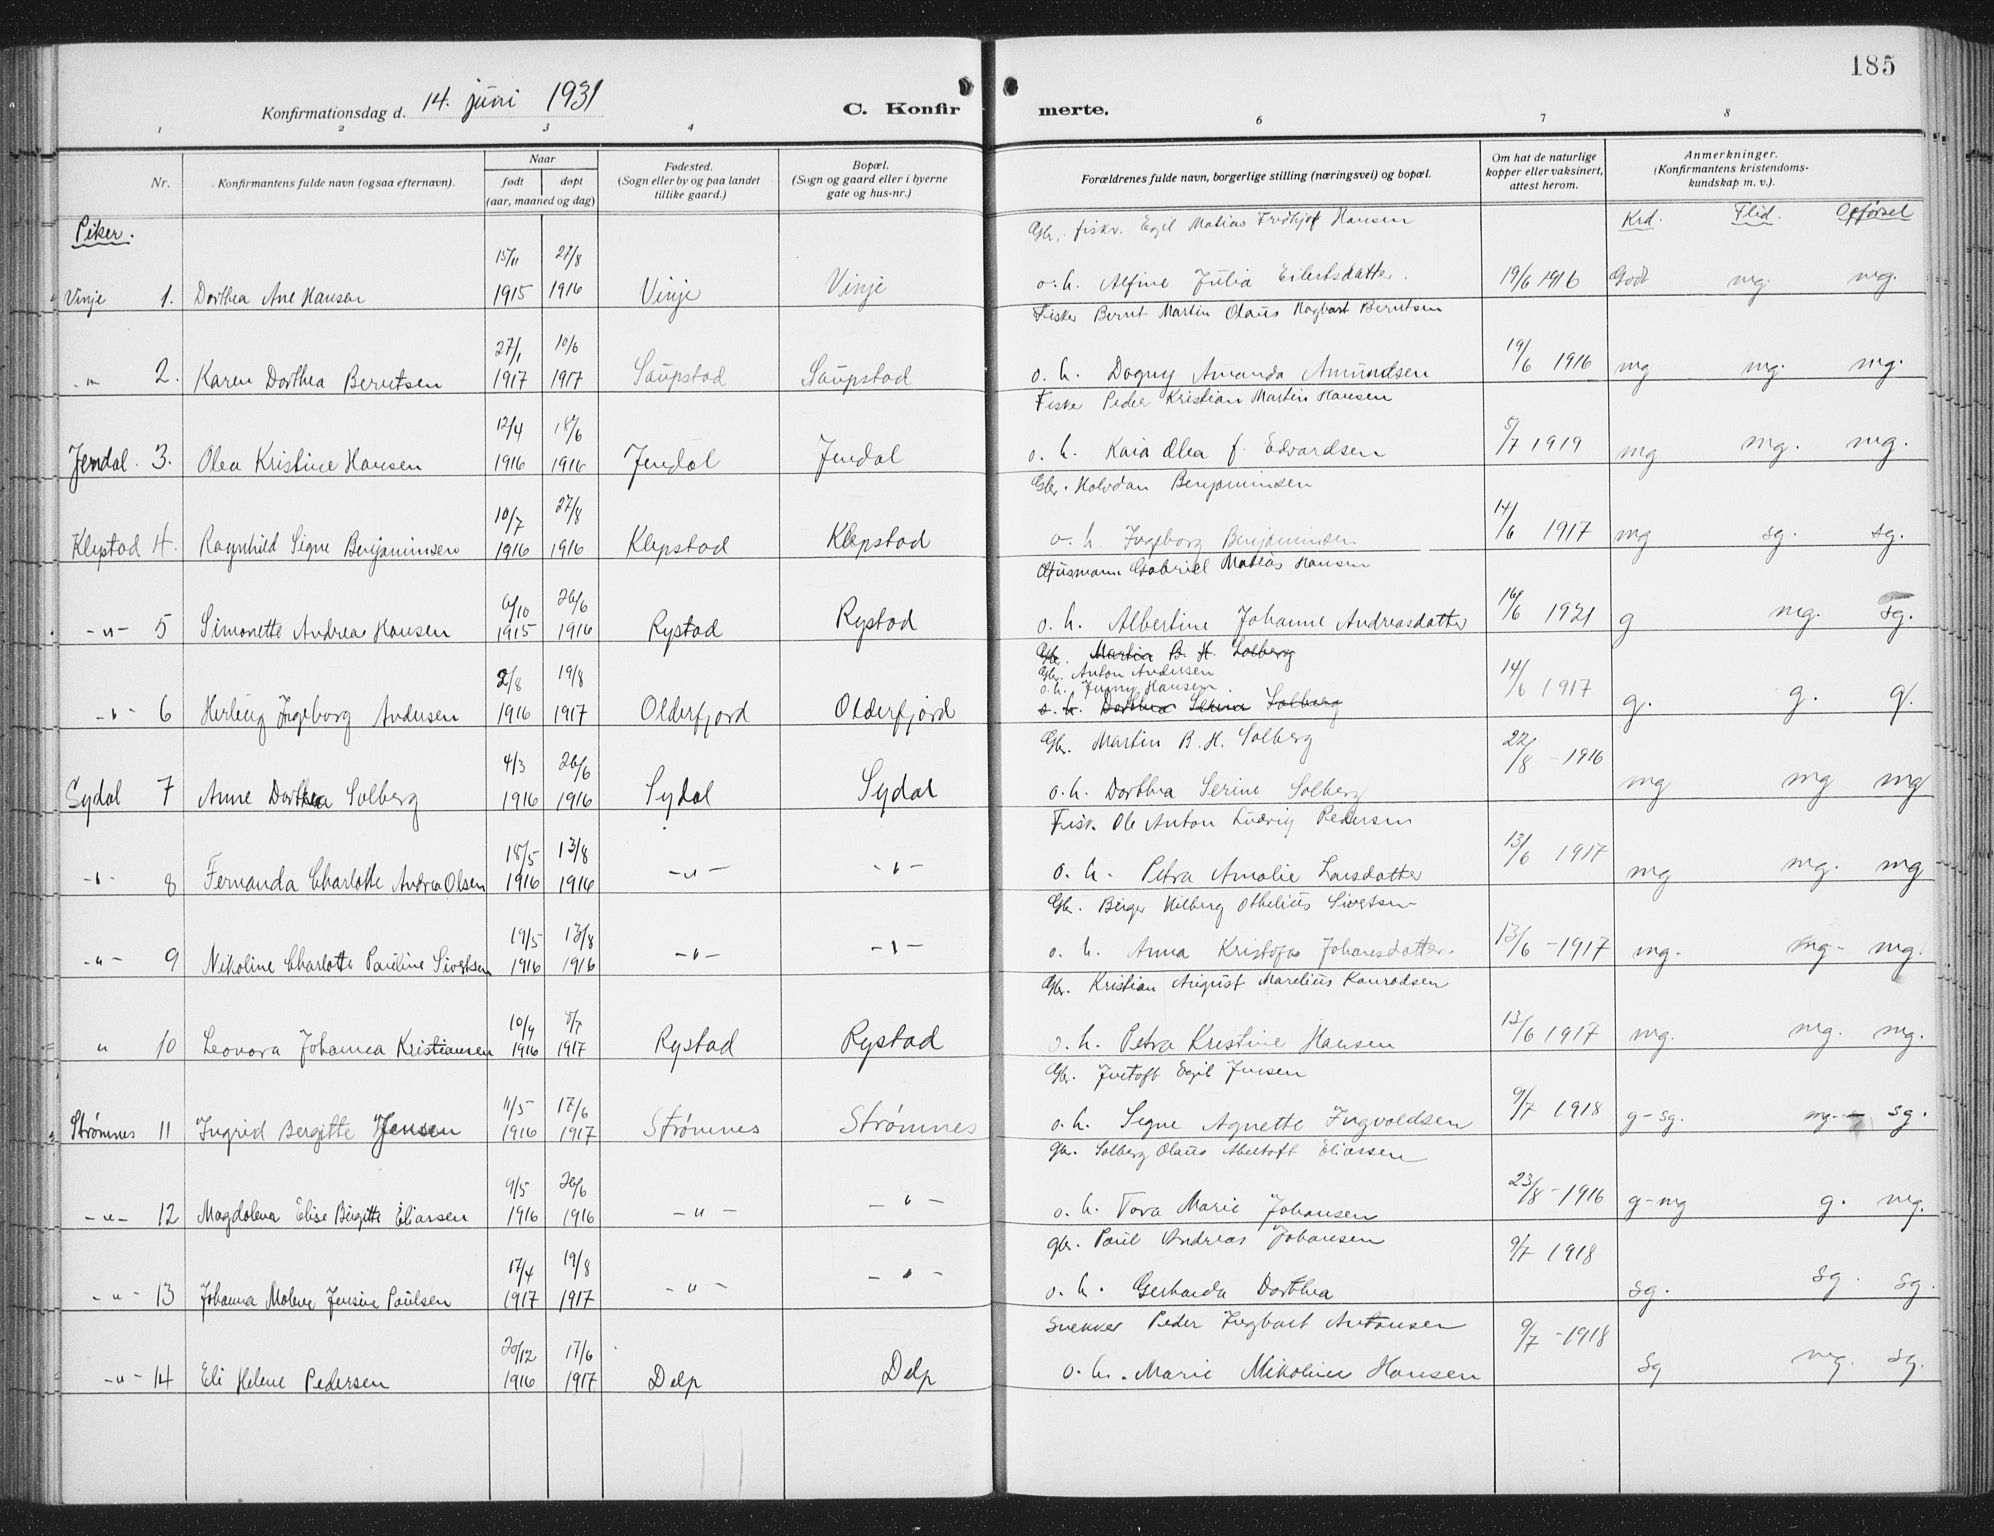 185
Konfirmationsdag d. 14. juni 1931
C. Konfirmerte.
1 2 3 4 6 7 8
Nr.
Konfirmantens fulde navn (ogsaa efternavn).
Naar
født døpt
(aar, maaned og dag)
Fødested.
(Sogn eller by og paa landet
tillike gaard.)
Bopæl.
(Sogn og gaard eller i byerne
gate og hus-nr.)
Forældrenes fulde navn, borgerlige stilling (næringsvei) og bopæl.
Om hat de naturlige
kopper eller vaksinert,
attest herom.
Anmerkninger.
(Konfirmantens kristendoms-
kundskap m. v.).
Piker.
Krd. Flid. Opførsel
15/11 27/8 Gbr. fiskr. Egil Matias Fridhjof Hansen
Vinje 1. Dorthea Ane Hansen 1915 1916 Vinje Vinje o. h. Alfine Julia Eilertsdatter. 19/6 1916 Godt mg. mg.
27/1 10/6 Fisker Bernt Martin Olaus Hagbart Berntsen
-"- 2. Karen Dorthea Berntsen 1917 1917 Saupstad Saupstad o. h. Dagny Amanda Amundsen 19/6 1916 mg mg. mg.
12/4 18/6 Fisker Peder Kristian Martin Hansen
Jendal. 3. Olea Kristine Hansen 1916 1916 Jendal Jendal o. h. Kaia Olea f. Edvardsen 5/7 1919 mg mg. mg.
10/7 27/8 Gbr. Halvdan Benjaminsen
Klepstad 4. Ragnhild Signe Benjaminsen 1916 1916 Klepstad Klepstad o. h. Ingeborg Benjaminsen 14/6 1917 mg sg. sg.
6/10 26/6 Husmann Gabriel Matias Hansen
-"- 5 Simonette Andrea Hansen 1915 1916 Rystad Rystad o. h. Albertine Johanne Andreasdatter 16/6 1921 g mg. sg.
2/8 19/8 Gbr. Martin B. H. Solberg
Gbr. Anton Andersen
o. h. Jenny Hansen.
-"- 6 Herleug Ingeborg Andersen 1916 1917 Olderfjord Olderfjord o. h. Dorthea Serine Solberg 14/6 1917 g. g. g.
4/3 26/6 Gbr. Martin B. H. Solberg
Sydal 7 Anne Dorthea Solberg 1916 1916 Sydal Sydal o. h. Dorthea Serine Solberg 22/8 - 1916 mg mg mg
18/5 13/8 Fisk. Ole Anton Ludvig Pedersen
-"- 8 Fernanda Charlotte Andrea Olsen 1916 1916 -"- -"- o. h. Petra Amalie Larsdatter 13/6 1917 mg mg. mg
19/5 13/8 Gbr. Birger Hilberg Othelius Sivertsen
-"- 9 Nikoline Charlotte Pauline Sivertsen 1916 1916 -"- -"- o. h. Anna Kristofa Johansdatter. 13/6 - 1917 mg. mg- mg.
10/9 8/7 Gbr. Kristian August Marelius Konradsen
" 10 Leonora Johanna Kristiansen 1916 1917 Rystad Rystad o. h. Petra Kristine Hansen 13/6 1917 mg. mg. mg.
11/5 17/6 Gbr. Egil Jensen
Strømnes 11 Ingrid Bergitte Jensen 1916 1917 Strømnes Strømnes o. h. Signe Agnette Ingvaldsen 9/7 1918 g-sg. mg.- sg.
9/5 26/6 gbr. Solberg Olaus Abeltoft Eliassen
-"- 12 Magdalena Elise Birgitte Eliassen 1916 1916 -"- -"- o. h. Tora Marie Johansen 23/8 - 1916 g-mg g. mg.
17/4 19/8 gbr. Paul Andreas Johansen
-"- 13 Johanna Malene Jensine Paulsen 1917 1917 -"- -"- o. h. Gerharda Dorthea 9/7 1918 sg. sg. sg.
20/12 17/6 Snekker Peder Ingbart Antonsen
-"- 14 Eli Helene Pedersen 1916 1917 Delp Delp o. h. Marie Nikoline Hansen 9/7 - 1918 sg mg. sg.